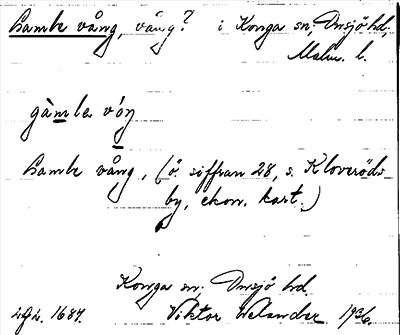 Gamle vång, vång? i Konga sn, Onsjö hd,
Malm. l.
gàmle vóŋ
Gamle vång, (ö. siffran 28, s. Kloveröds
by, ekon. kart.)
Konga sn. Onsjö hd.
1687. Viktor Welander 1936.